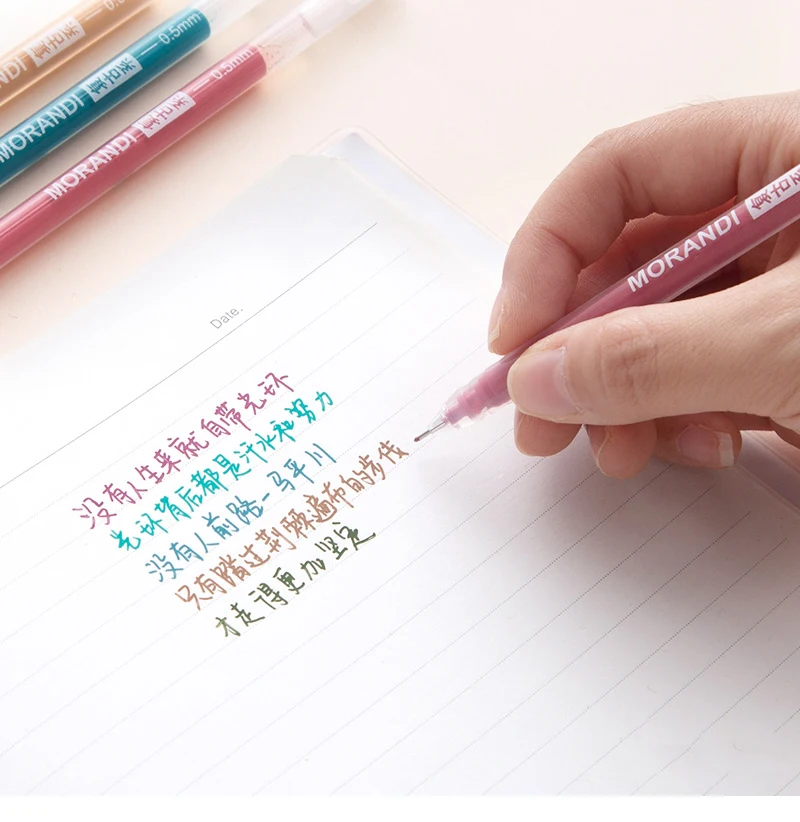 MORANDI 复古彩 0.5mm
MORANDI 复古彩 0.5mm
MORANDI 复古彩
Date.
没有人生来就自带光环
光环背后都是汗水和努力
没有人前路一马平川
只有踏过荆棘遍布的步伐
才走得更加坚定